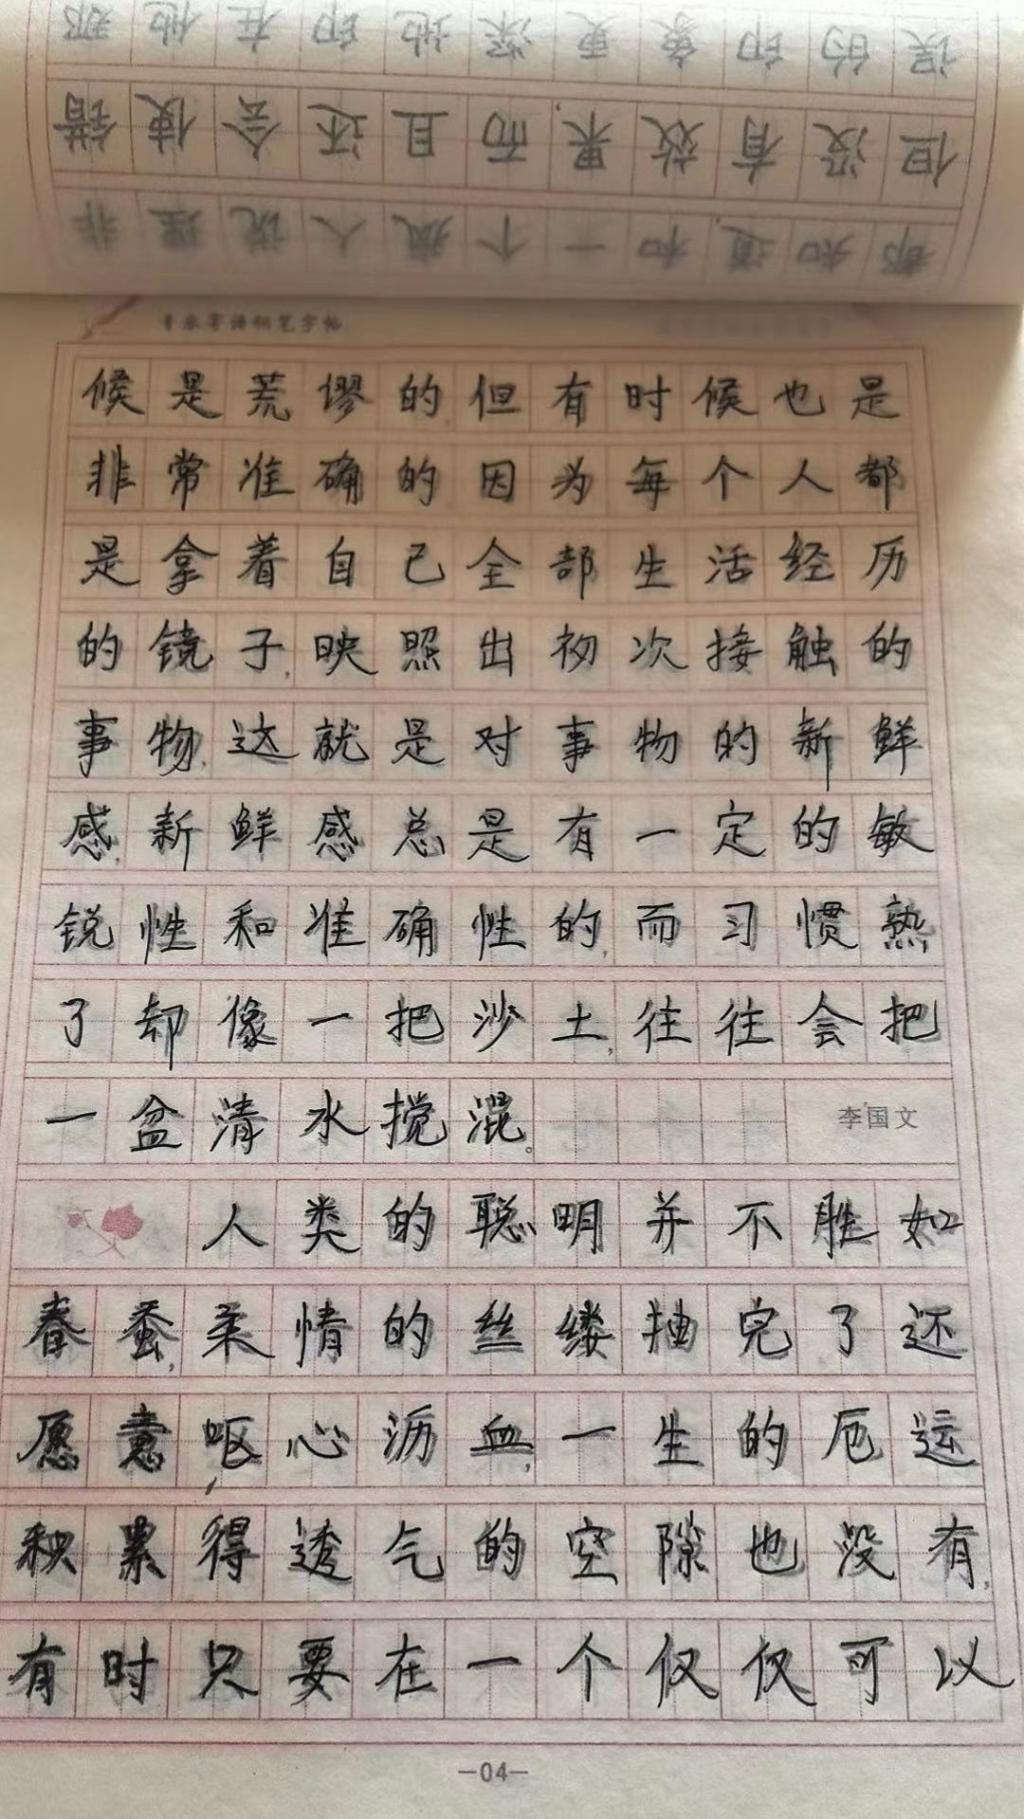 都知道和一个疯人说理非
但没有效果,而且还会使错
误的印象更深地印在他那
青春寄语钢笔字帖
候是荒谬的,但有时候也是
非常准确的因为每个人都
是拿着自己全部生活经历
的镜子,映照出初次接触的
事物,这就是对事物的新鲜
感,新鲜感总是有一定的敏
锐性和准确性的,而习惯熟
了却像一把沙土,往往会把
一盆清水搅混。 李国文
人类的聪明并不胜如
春蚕,柔情的丝缕抽完了还
愿意呕心沥血,一生的厄运
积累得透气的空隙也没有,
有时只要在一个仅仅可以
—04—